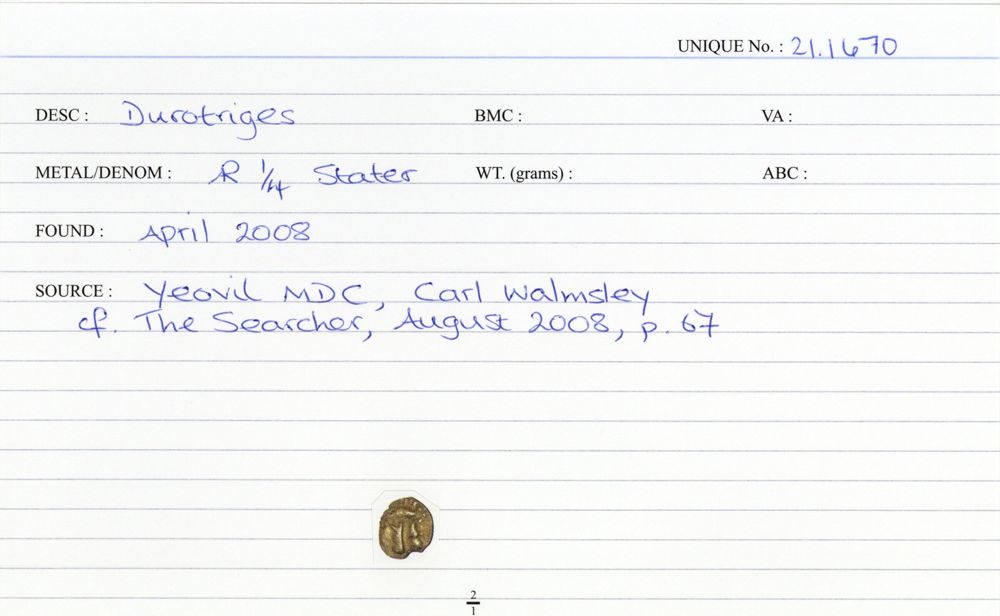 UNIQUE No. : 21.1670
DESC : Durotriges BMC : VA :
METAL/DENOM : Æ 1/4 Stater WT. (grams) : ABC :
FOUND : April 2008
SOURCE : Yeovil MDC, Carl Walmsley
cf. The Searcher, August 2008, p. 67
2
1